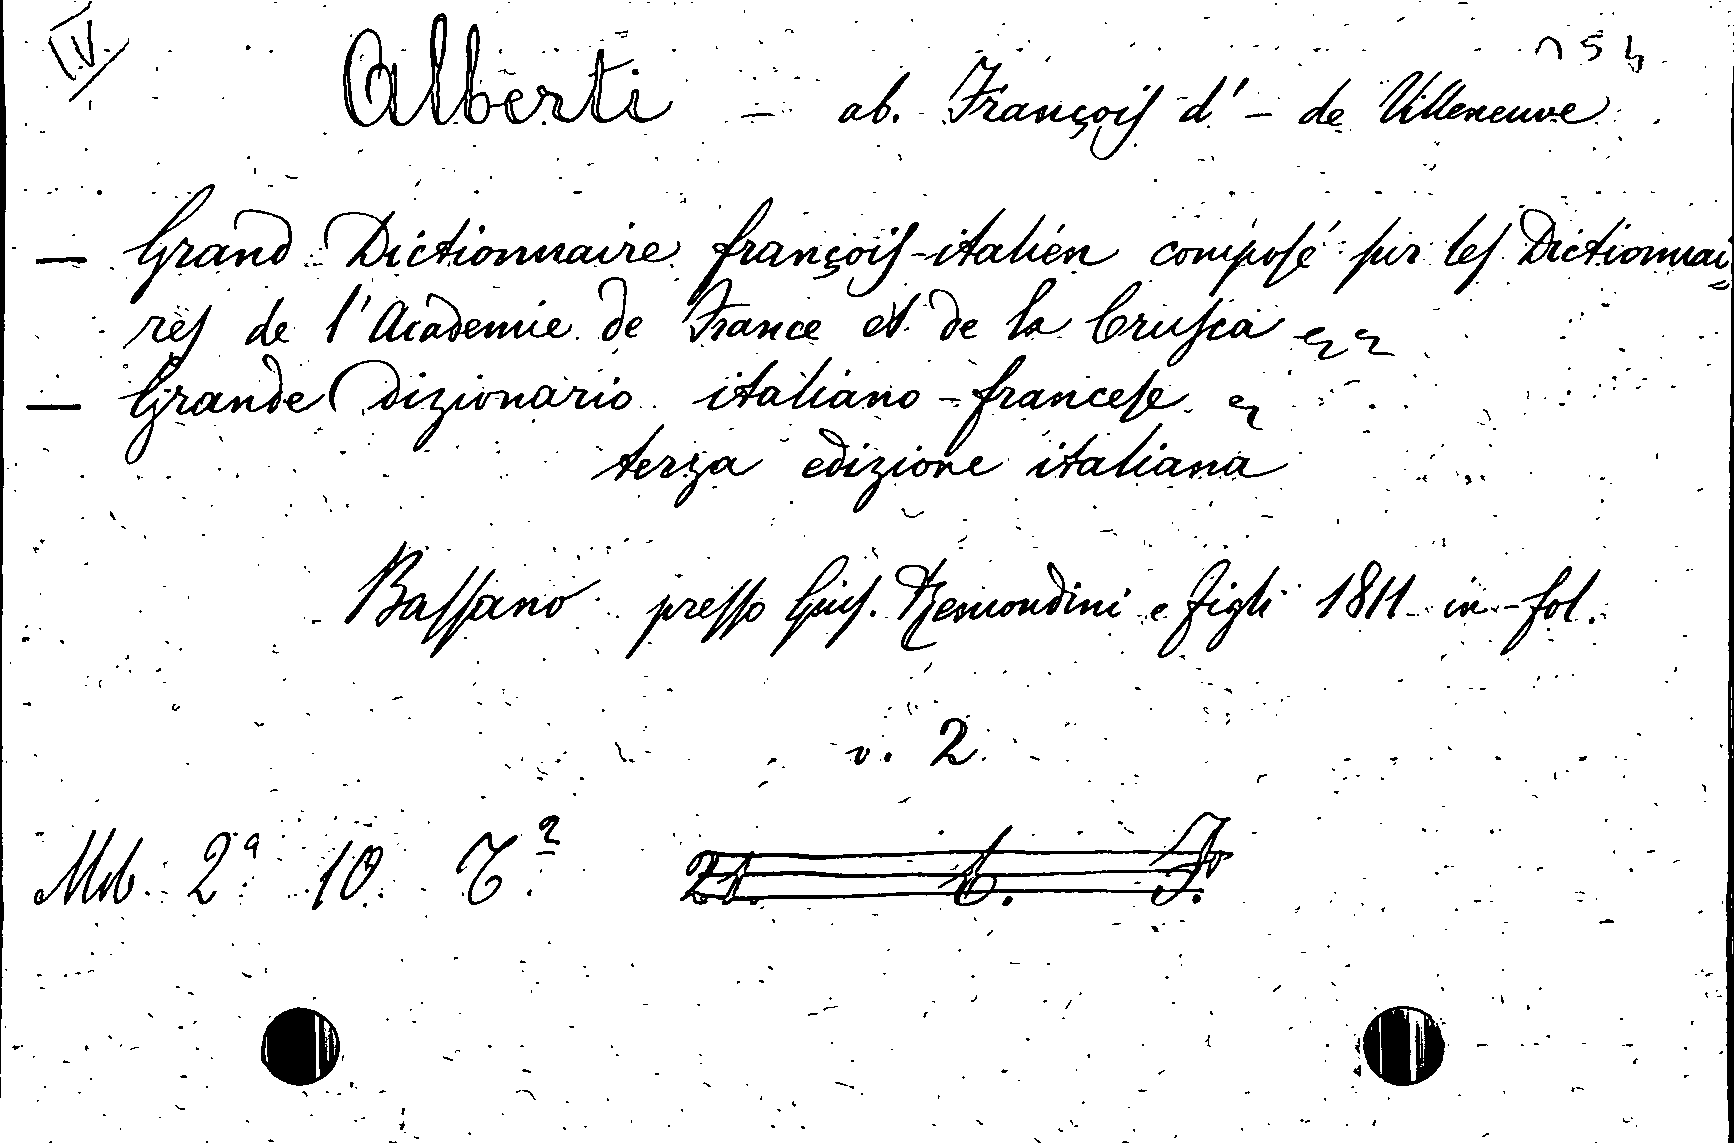 I.V.
Alberti - ab. François d' - de Villeneuve
- Grand Dictionnaire françois-italien composé sur les Dictionnai=
res de l'Academie de France et de la Crusca
- Grande dizionario italiano-francese
terza edizione italiana
Bassano presso Gius. Remondini e figli 1811 in-fol.
v. 2
2ª 10.